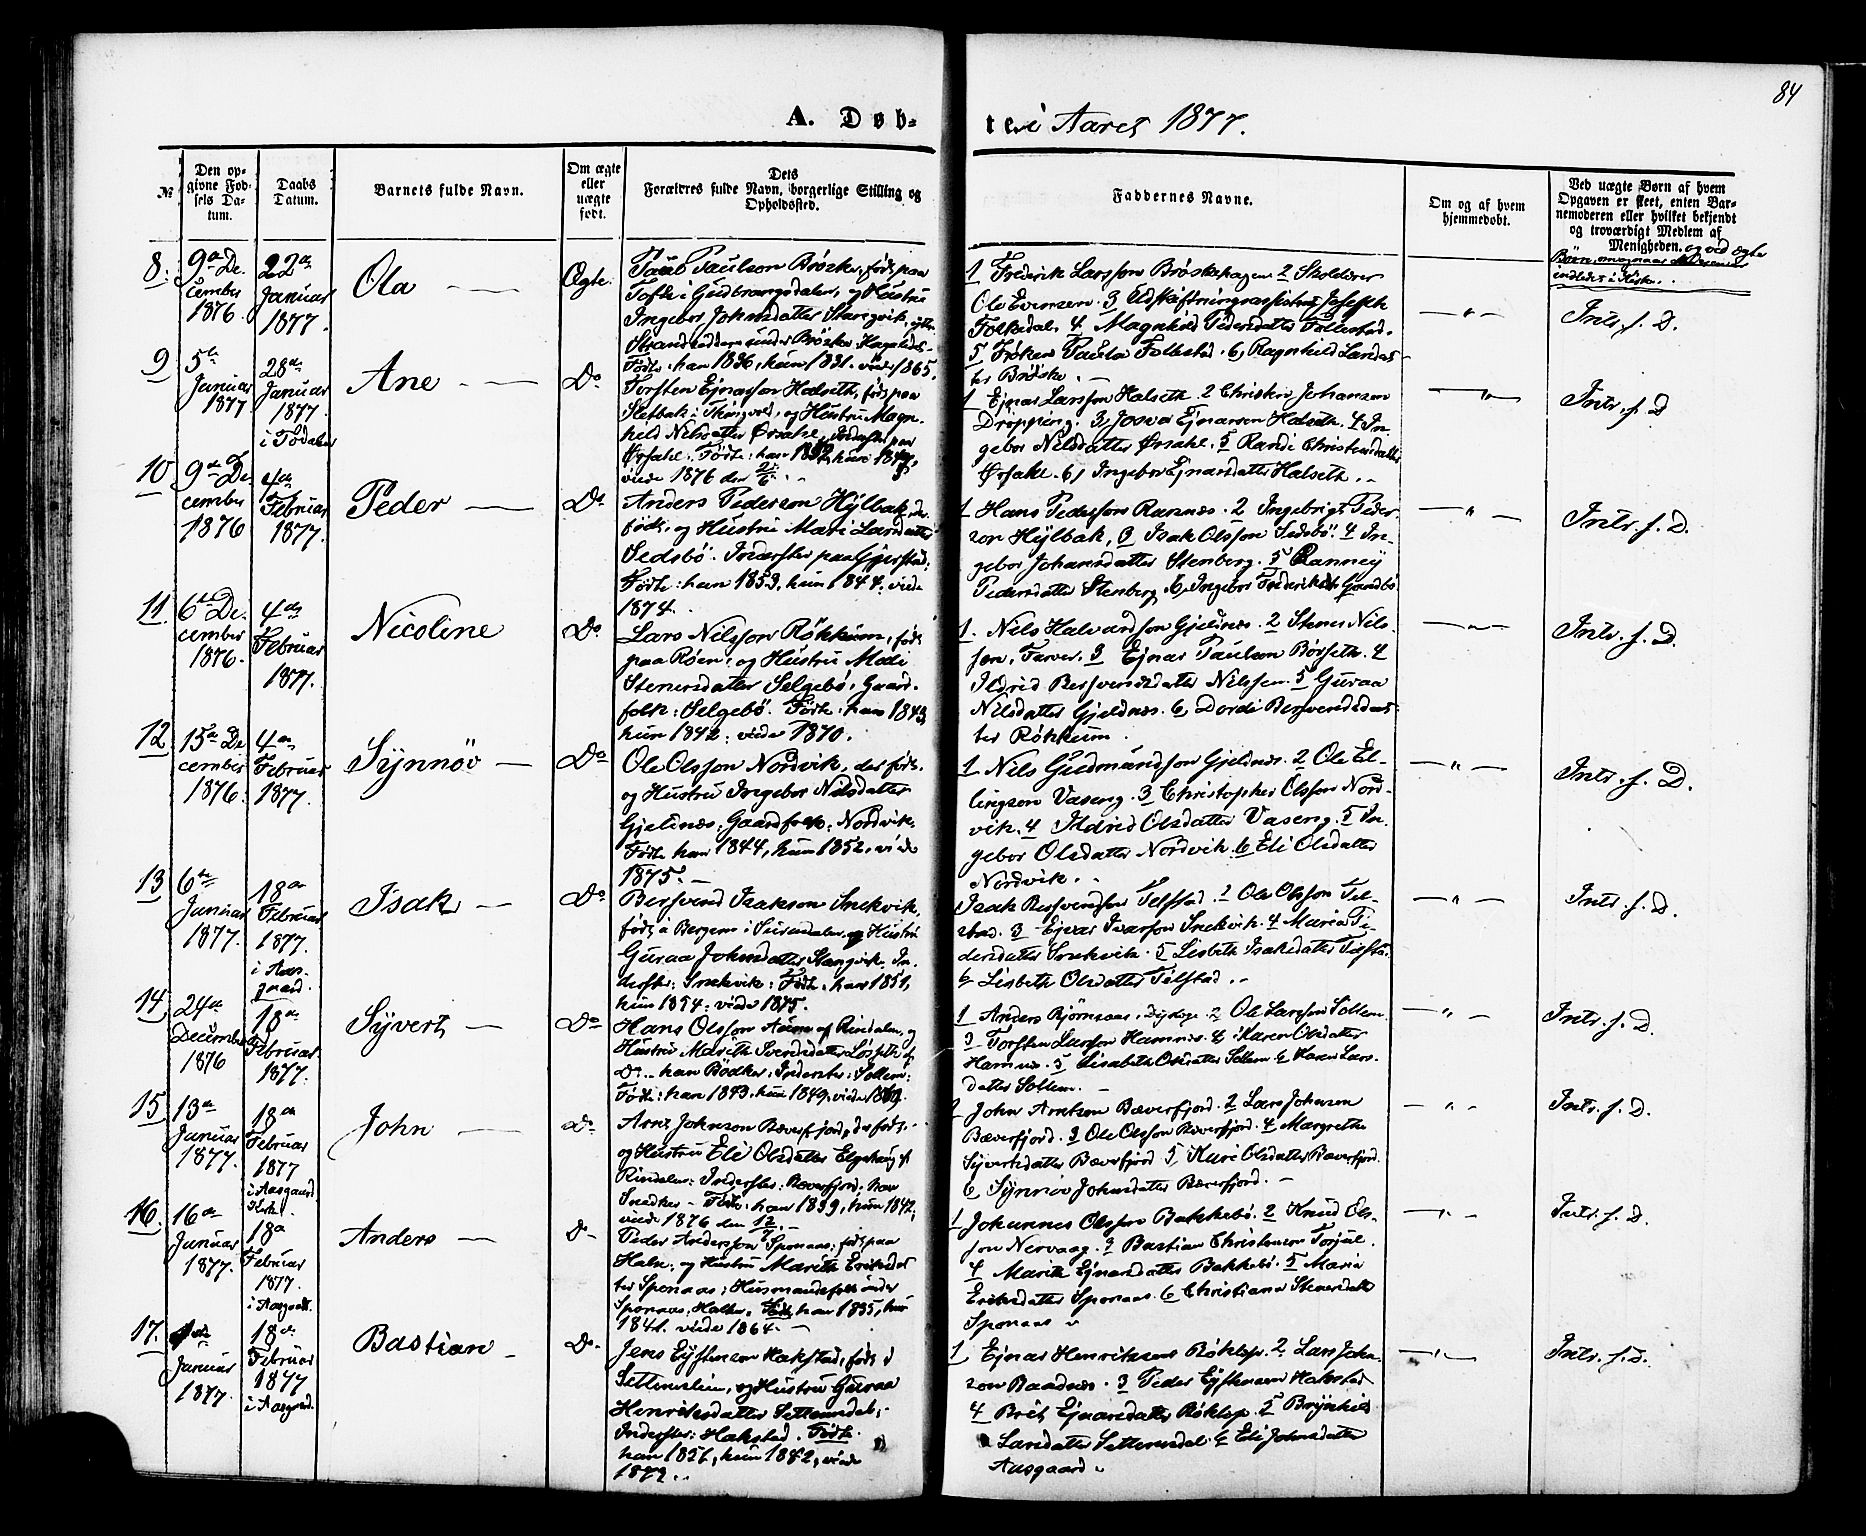 84
A. Døb-
te i Aaret 1877.
№
Den op-
givne Fød-
sels Da-
tum.
Daabs
Datum.
Barnets fulde Navn.
Om ægte
eller
uægte
født.
Dets
Forældres fulde Navn, borgerlige Stilling og
Opholdssted.
Faddernes Navne.
Om og af hvem
hjemmedøbt.
Ved uægte Børn af hvem
Opgaven er skeet, enten Bar-
nemoderen eller hvilket bekjendt
og troværdigt Medlem af
Menigheden. og ved ægte
8.
9de De-
cember
1876.
22de
Januar
1877.
Ola
Ægte.
Tofte i Gudbrandsdalen, og Hustru
Ingebor Johnsdatter Stangvik,
Fødte: han 1836, hun 1831. viede 1865.
1 Frederik Larsson Brøskehagen 2 Skolelærer
Ole Evensen. 3 Udskiftningsassistent Joseph
Folkedal. 4 Magnhild Pedersdatter Follestad.
5 Frøken Paula Follestad. 6, Ragnhild Larsdat-
ter Brøske.
Intr. f. D.
9
5te
Januar
1877
28de
Januar
1877.
i Todalen
Ane
Do
Torsten Ejnarson Halseth, født paa
Sletbak i Tingvold, og Hustru Magn-
hild Nilsdatter Ørsahl,
viede 1876 den
1 Ejnar Larsson Halseth. 2 Christen Johansen
Drøpping. 3, Josva Ejnarson Halseth. 4 In-
gebor Nilsdatter Ørsahl. 5 Randi Christensdatter
Ørsahl. 6, Ingebor Ejnarsdatter Halseth.
Intr. f. D
10
9de De
cember
1876
4de
Februar
1877.
Peder
Do
Anders Pederson Hylbak, der
født, og Hustru Mari Larsdatter
Sedsbö. Inderster paa Gjerstad;
Fødte: han 1853, hun 1844. viede
1874.
1 Hans Pederson Rannes. 2 Ingebrigt Peder-
son Hylbak, 3 Isak Olsson Sedsbö. 4 In-
gebor Johansdatter Stenberg. 5 Ranney
Pedersdatter Stenberg. 6, Ingebor
Intr. f. D.
11.
6te De-
cember
1876.
4de
Februar
1877.
Nicoline
Do
Lars Nilsson Røkkum, født
paa Røen, og Hustru Modi
Stenersdatter Selgebö, Gaard-
folk: Selgebö. Fødte: han 1843,
hun 1842: viede 1870.
1. Nils Halvardson Gjeldnes. 2 Stener Nils-
sen, Farver. 3 Ejnar Paulsen Børseth. 4
Ildrid Bersvendsdatter Nilssen. 5 Guraa
Nilsdatter Gjeldnes. 6, Dordi Bersvendsdat-
ter Røkkum.
Intr. f. D.
12
15de De
cember
1876.
4de
Februar
1877.
Synnöv
Do
Ole Olsson Nordvik, der født.
og Hustru Ingebor Nilsdatter
Gjeldnes: Gaardfolk: Nordvik.
Fødte han 1844, hun 1852, viede
1875.
1 Nils Gudmundson Gjeldnes. 2 Ole El-
lingson Vaseng. 3 Christopher Olsson Nord-
vik. 4 Ildrid Olsdatter Vaseng. 5 In-
gebor Olsdatter Nordvik. 6 Eli Olsdatter
Nordvik.
Intr. f. D.
13
6te
Januar
1877.
18de
Februar
1877.
i Aas-
gaard.
Isak
Do
Bersvend Isakson Snekvik,
født a Bergem i Surendalen og Hustru
Guraa Johnsdatter Stangvik. In-
derster: Snekvik: Fødte: han 1851,
hun 1854: viede 1875.
Isak Bersvendson Telstad. 2 Ole Olsson Tel-
stad. 3 Ejvar Ivarson Snekvik. 4 Marie Pe-
dersdatter Snekvik. 5 Lisbeth Isaksdatter
6 Lisbeth Olsdatter Telstad.
Intr. f. D.
14
24de
December
1876
18de
Februar
1877.
Syvert
Do
Hans Olsson Aune af Rindalen, og
Hustru Marith Sversdatter
Do. han Bødker; Inderster: Sollem:
Fødte: han 1843, hun 1849, viede
1 Anders Bjørnaas, 2 Ole Larsson Sollem
3 Torsten Larsson Hamnes. 4 Karen Olsdatter
Hamnes. 5 Elisabeth Olsdatter Sollem 6 Karen Lars-
datter Sollem.
Intr. f. D.
15
13de
Januar
1877.
18de
Februar
1877
i Aasgaard
Kirke.
John
Do
Arnt Johnson Bæverfjord, der født.
og Hustru Eli Olsdatter Elgshaug af
Rindalen: Inderster: Bæverfjord: han
Snedker – Fødte: han 1839, hun 1842,
viede 1876 den
1 John Arntson Bæverfjord. 2 Lars Johnson
Bæverfjord. 3 Ole Olsson Bæverfjord. 4 Margrethe
Syvertsdatter Bæverfjord 5 Kari Olsdatter Bæverfjord.
6 Synnöv Johnsdatter Bæverfjord.
Intr. f. D.
16.
16de
Januar
1877.
18de
Februar
1877.
i Aasgaard.
Anders
D
Peder Anderson Sponaas; født paa
Halse; og Hustru Marith Eriksdat
ter Sponaas; Husmandsfolk under
Sponaas, Halse. Fødte han 1835, hun
1841. viede 1864.
1 Johannes Olsson Bakkebö. 2 Knud Ols-
son Nervaag. 3 Bastian Christensen Torjul.
4 Marith Ejnarsdatter Bakkebö. 5 Marie
Eriksdatter Sponaas. 6 Christiane Stenersdatt
Sponaas
Intr. f. D.
17.
Januar
1877.
18de
Februar
1877
i Aasgaard.
Bastian
Do
Jens Eystenson Hakstad, født i
Settemslien, og Hustru Guraa
Henriksdatter Settemsdal;
Inderster: Hakstad. Fødte.
viede
1 Ejnar Henrikson Røklep. 2 Lars John-
son Baadnes. 3 Peder Eystenson Hakstad
4 Brit Ejnarsdatter Røklep. 5 Brynhild
Larsdatter Settemsdal 6 Eli Johnsdatter
Aasgaard.
Intr. f. D.